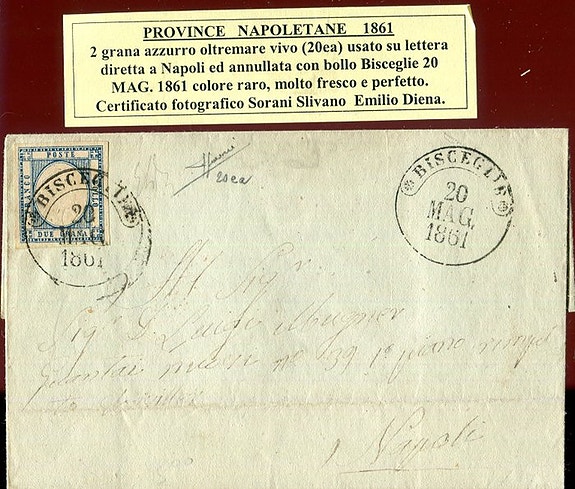 PROVINCE NAPOLETANE 1861
2 grana azzurro oltremare vivo (20ea) usato su lettera
diretta a Napoli ed annullata con bollo Bisceglie 20
MAG. 1861 colore raro, molto fresco e perfetto.
Certificato fotografico Sorani Slivano Emilio Diena.
POSTE
FRANCO
DUE GRANA
BISCEGLIE
20
MAG.
1861
20ea
BISCEGLIE
20
MAG.
1861
All Sigr
Sigr D. Luigi
no 39 1o piano
Napoli